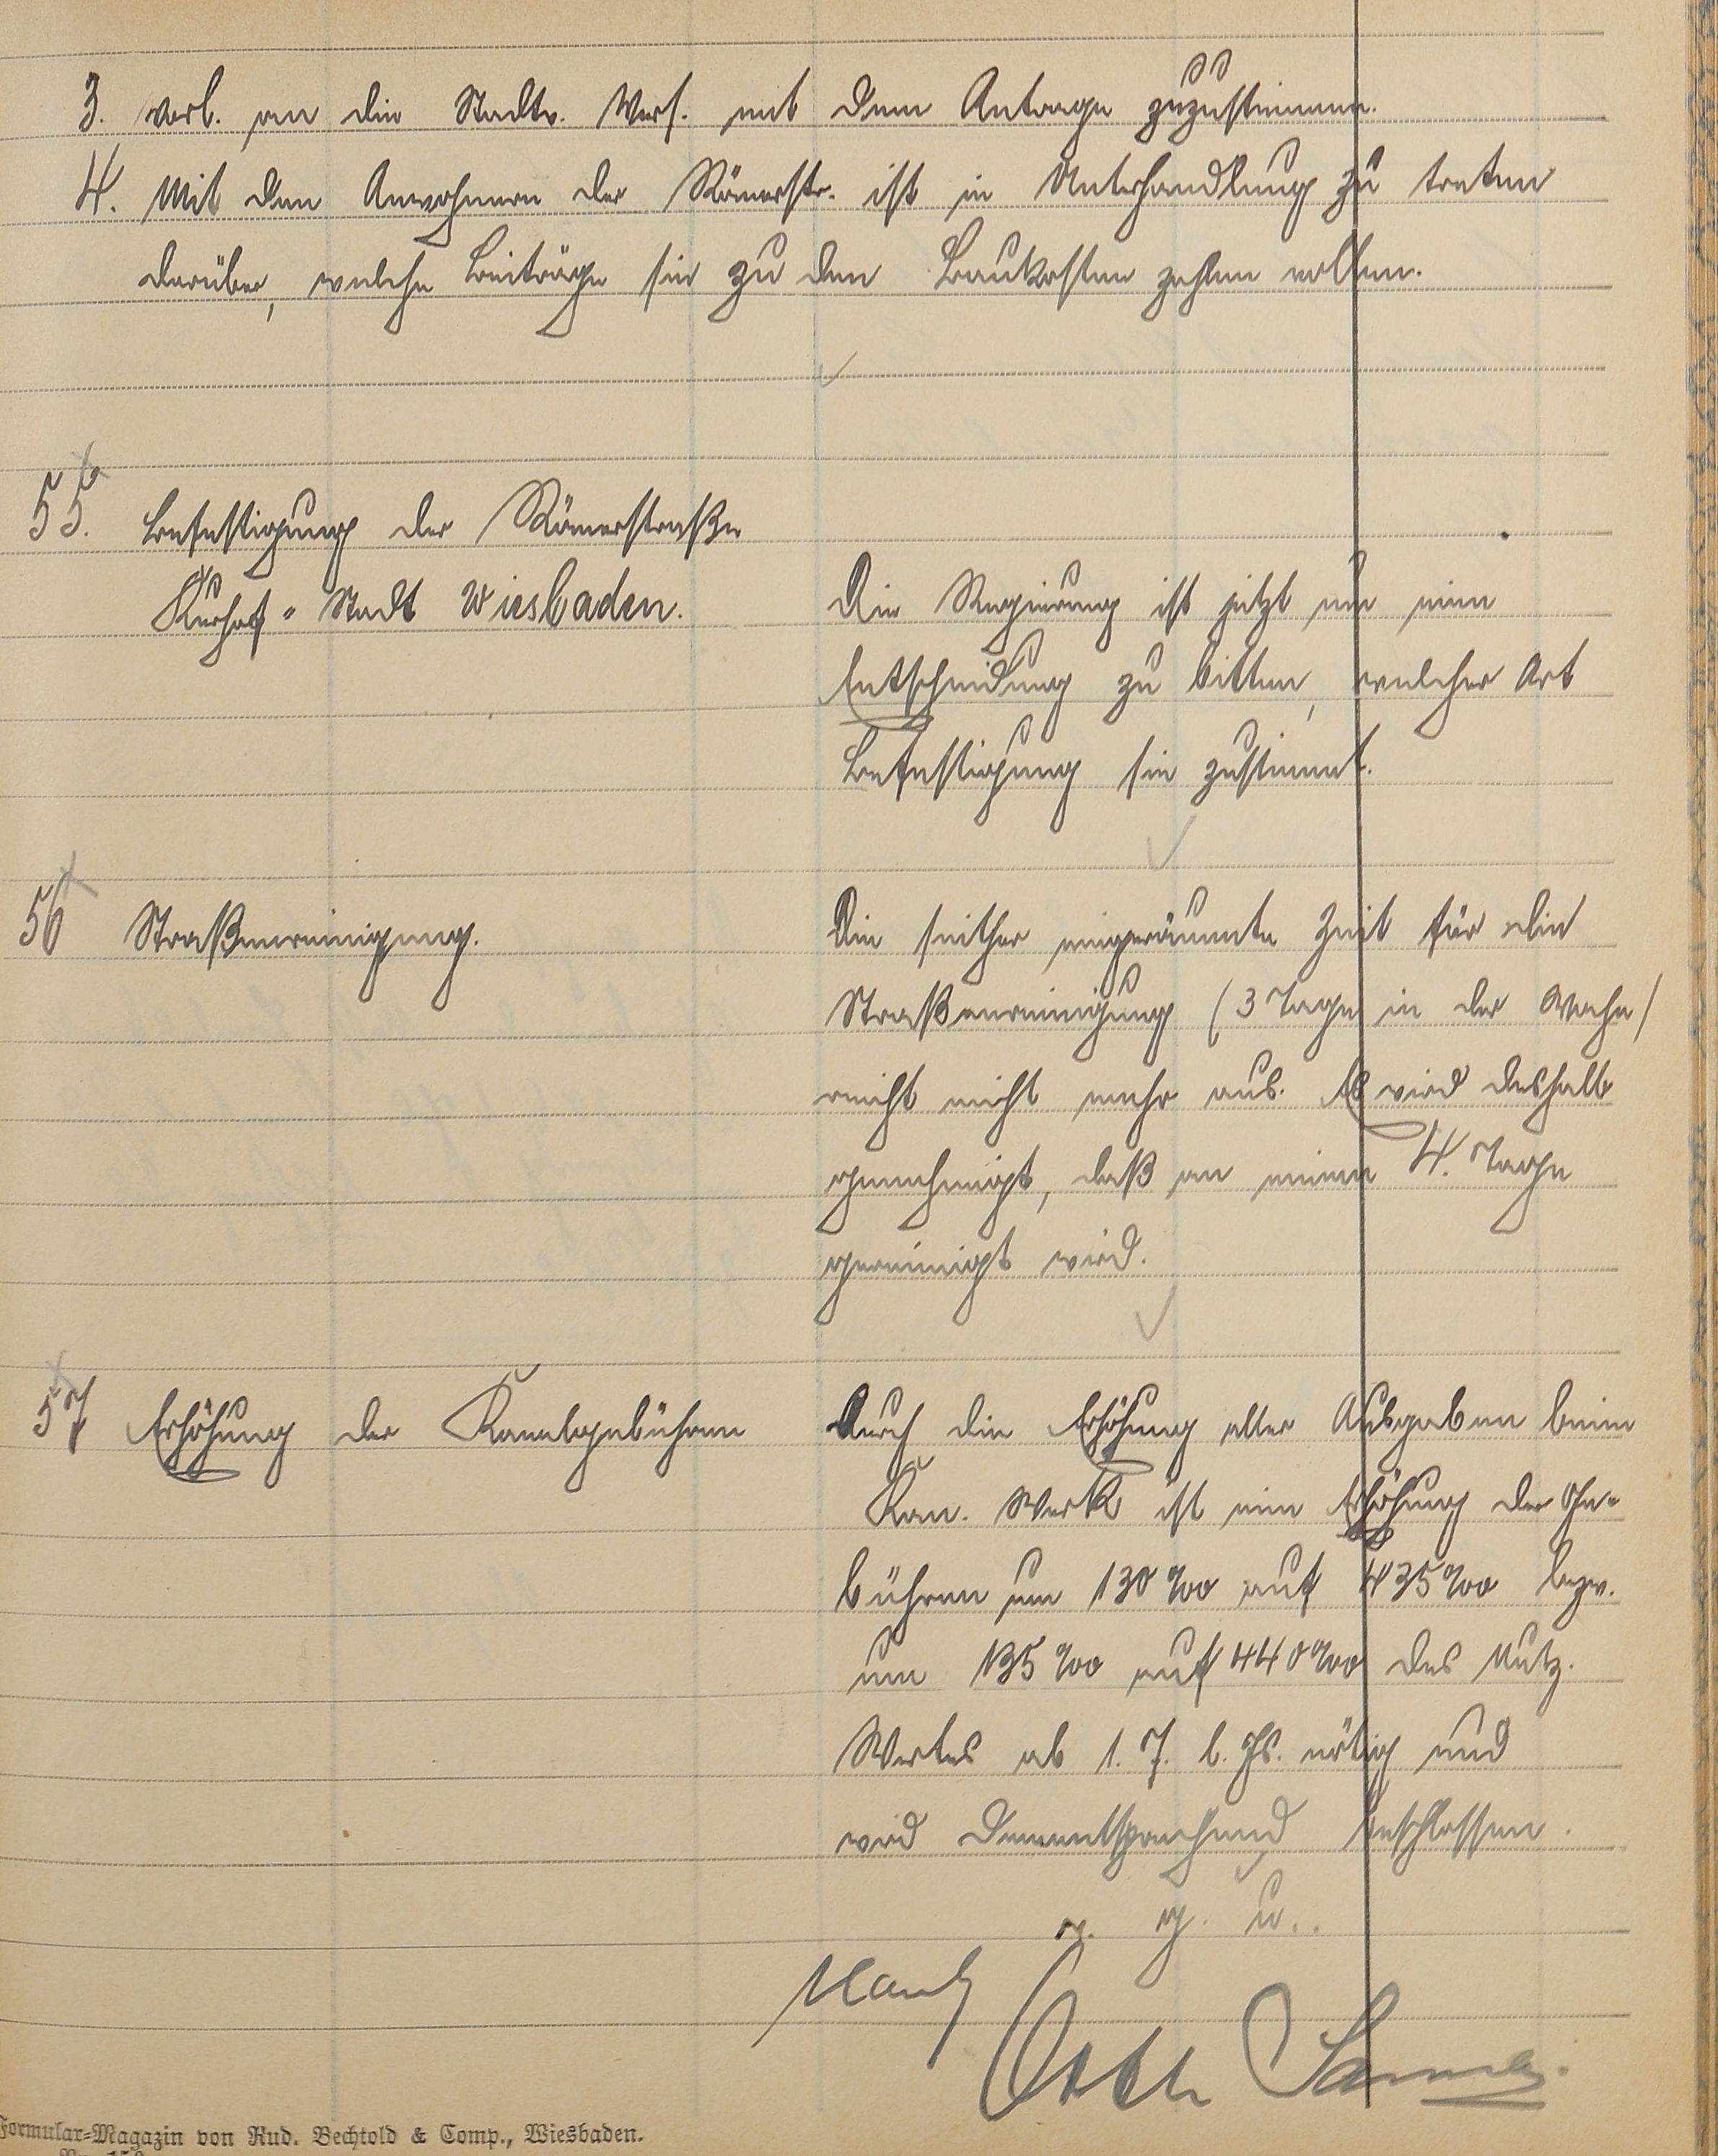 3. Vorl. an die Stadtv. Vers. mit dem Antrage zuzustimmen.
4. Mit den Anwohnern der Römerstr. ist in Unterhandlung zu treten
darüber, welche Beiträge sie zu den Baukosten zahlen wollen.
55. Befestigung der Römerstraße
Kurhof - Stadt Wiesbaden.
Die Regierung ist jetzt um eine
Entscheidung zu bitten, welcher Art
Befestigung sie zustimmt.
56 Straßenreinigung.
Die seither eingeräumte Zeit für die
Straßenreinigung (3 Tage in der Woche)
reicht nicht mehr aus. Es wird deshalb
genehmigt, daß an einem 4. Tage
gereinigt wird.
57 Erhöhung der Kanalgebühren
Durch die Erhöhung aller Ausgaben beim
Kan. Werk ist eine Erhöhung der Ge-
bühren um 130 %oo auf 435 %oo bezw.
um 135 %oo auf 440 %oo des Nutz.
Wertes ab 1. 7. l. Js. nötig und
wird dementsprechend beschlossen.
v. g. u.
Formular-Magazin von Rud. Bechtold & Comp., Wiesbaden.